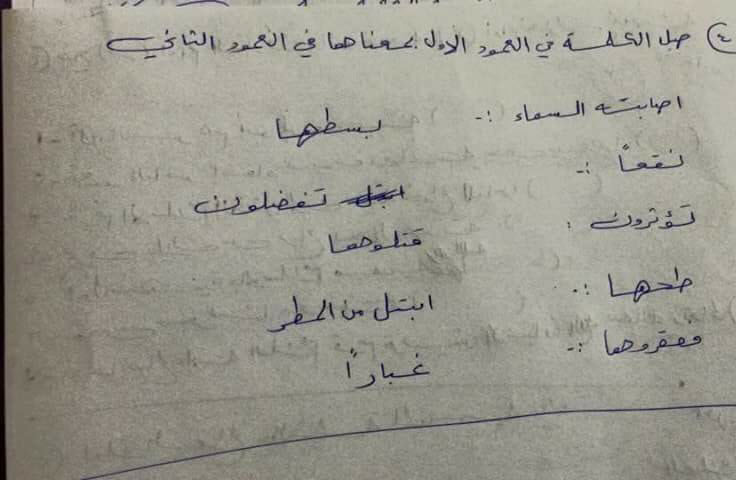 ٤) صل الكلمة في العمود الاول بمعناها في العمود الثاني
اصابته السماء :-
بسطها
نقعاً :-
تفضلون
تؤثرون :
قتلوها
طحها :-
ابتل من المطر
فعقروها :-
غباراً